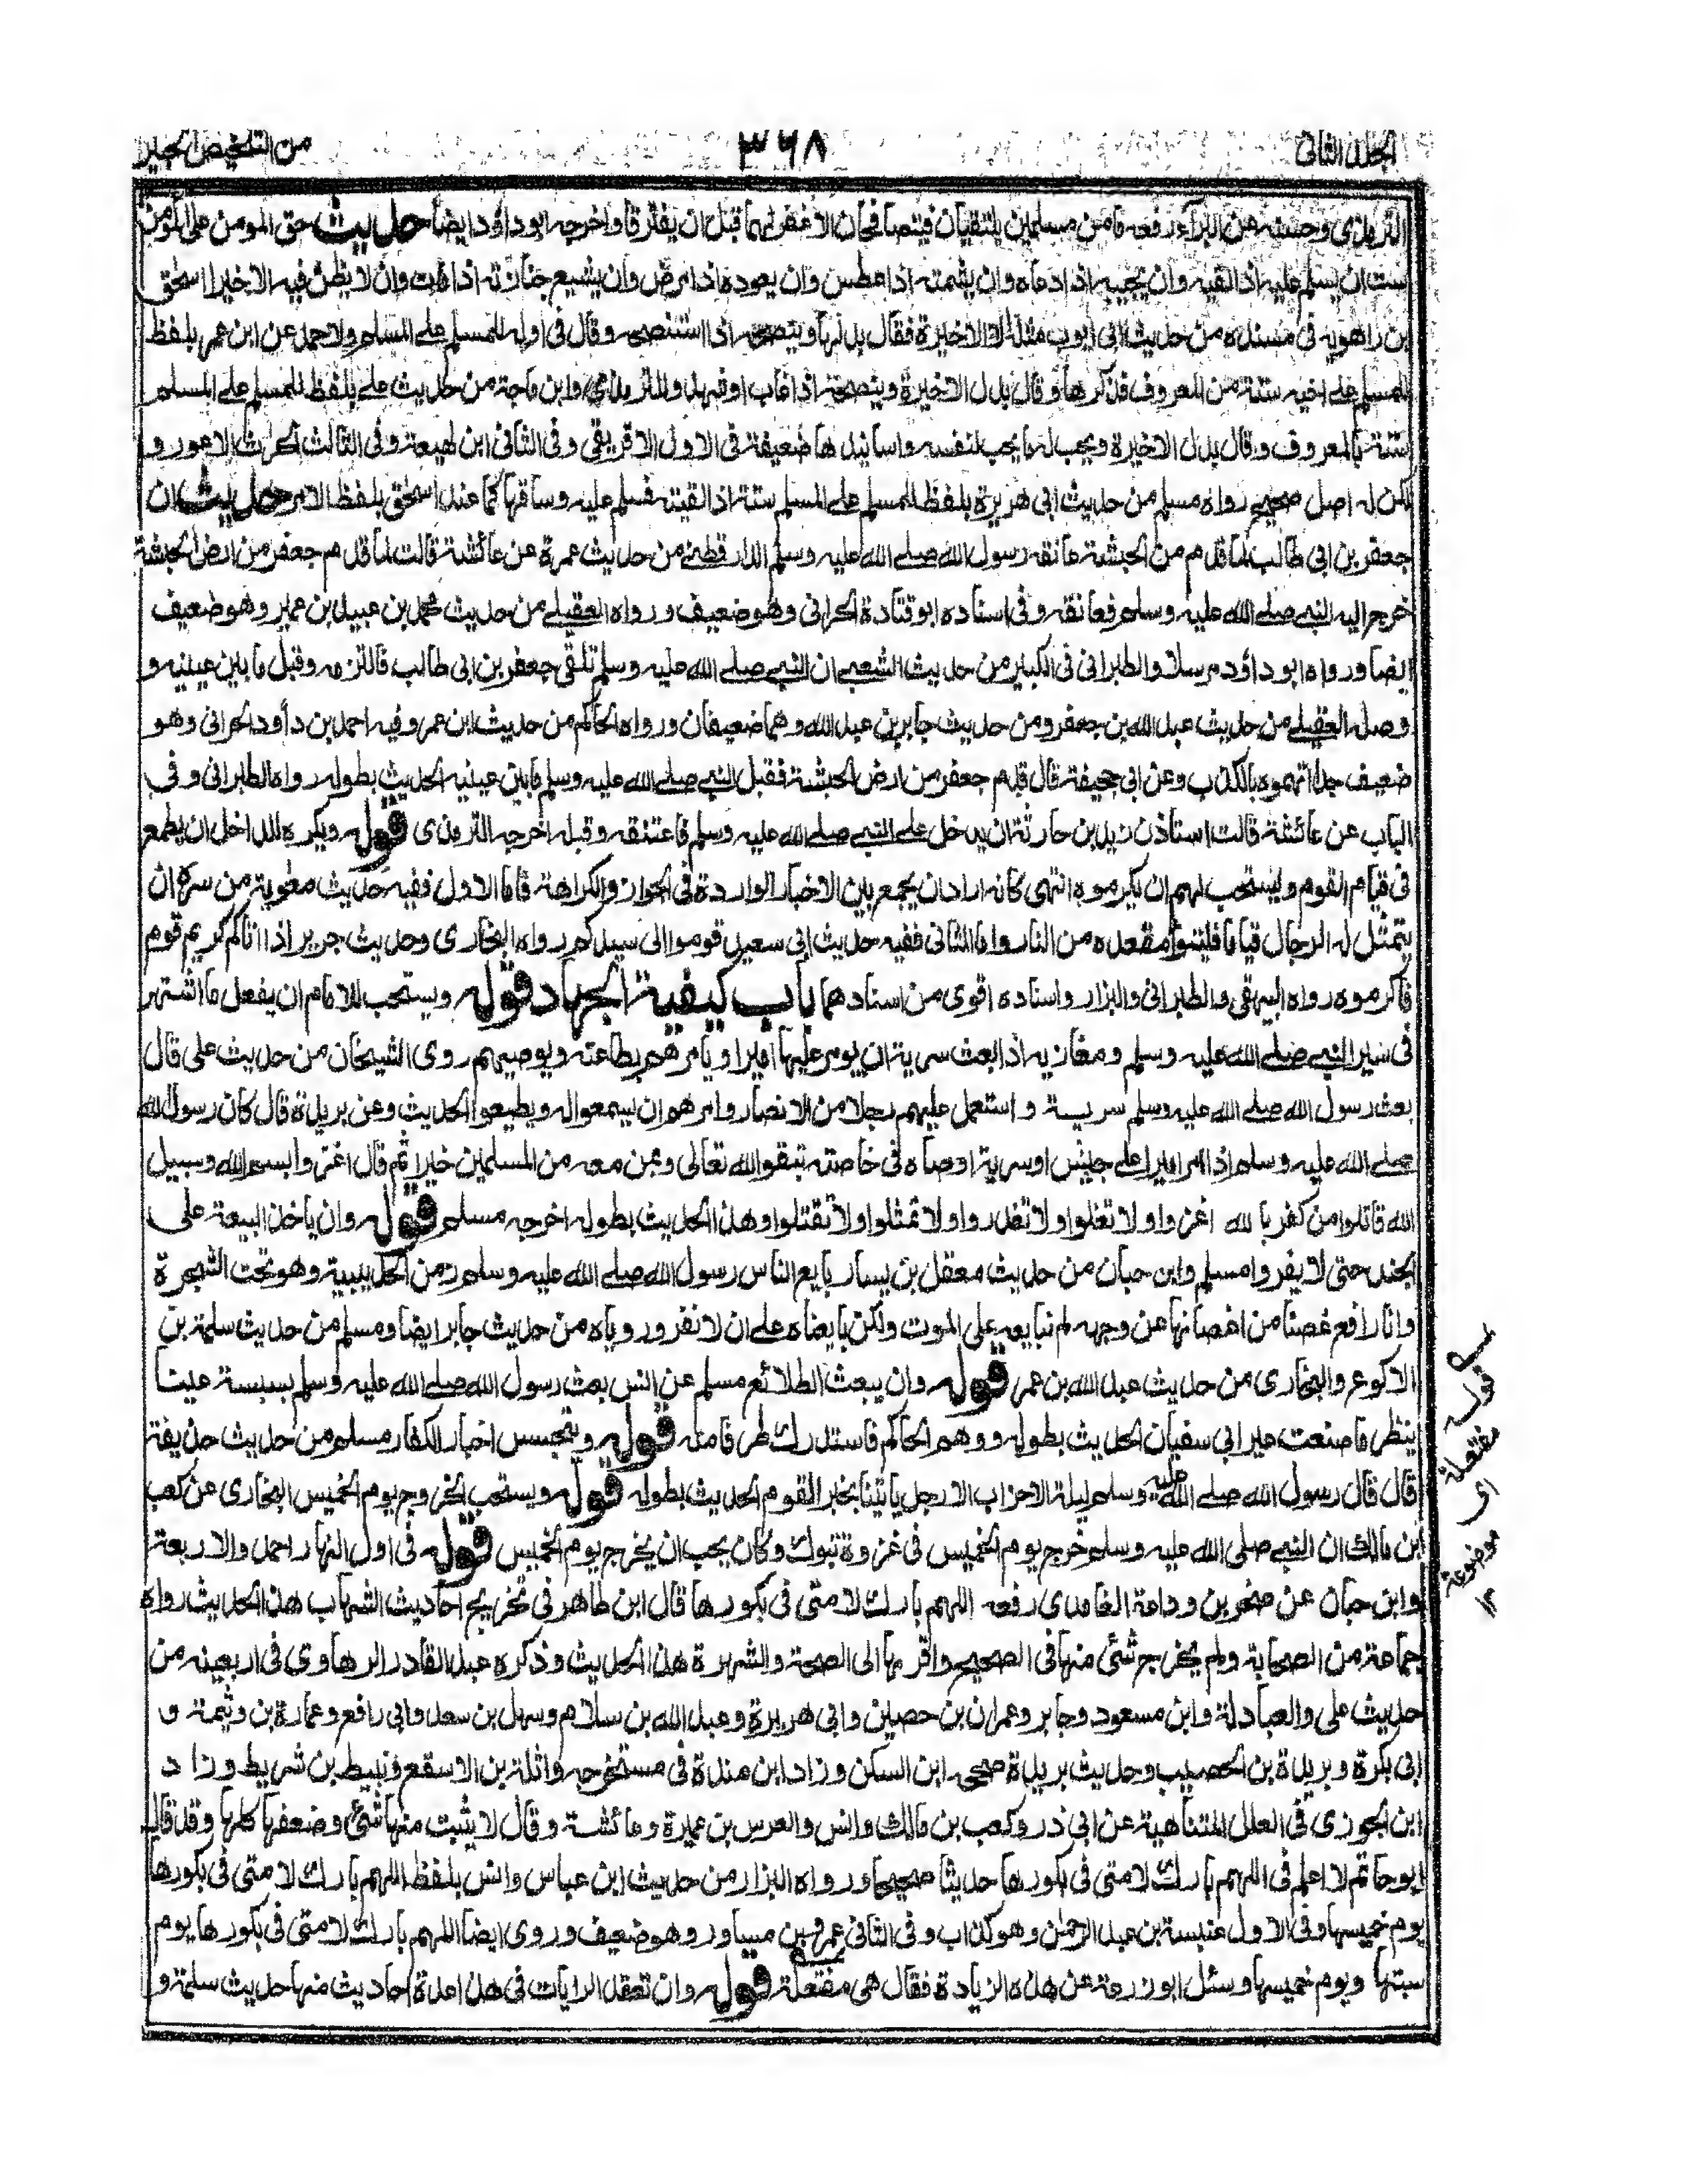 الجلد الثانى
٣٦٨
من التلخيص الحبير
الترمذى وحسنه عن البراء رفعه ما من مسلمين يلتقيان فيتصافحان الا غفر لهما قبل ان يفترقا واخرجه ابو داؤد ايضا حديث حق المومن على المومن
ست ان يسلم عليه اذا لقيه وان يجيبه اذا دعاه وان يشمته اذا عطس وان يعوده اذا مرض وان يشيع جنازته اذا مات وان لا يظن فيه الا خيرا اسحق
بن راهويه فى مسنده من حديث ابى ايوب مثله الا الاخيرة فقال بدلها وينصحه اذا استنصحه وقال فى اوله للمسلم على المسلم ولاحمد عن ابن عمر بلفظ
للمسلم على اخيه ستة من المعروف فذكرها وقال بدل الاخيرة وينصحه اذا غاب او شهد وللترمذى وابن ماجة من حديث على بلفظ للمسلم على المسلم
ستة بالمعروف وقال بدل الاخيرة ويحب له ما يحب لنفسه واسانيدها ضعيفة فى الاول الافريقى وفى الثانى ابن لهيعة وفى الثالث الحرث الاعور و
لكن له اصل صحيح رواه مسلم من حديث ابى هريرة بلفظ للمسلم على المسلم ستة اذا لقيته فسلم عليه وساقها كما عند اسحق بلفظ الامر حديث ان
جعفر بن ابى طالب لما قدم من الحبشة عانقه رسول الله صلى الله عليه وسلم الدارقطنى من حديث عمرة عن عائشة قالت لما قدم جعفر من ارض الحبشة
خرج اليه النبى صلى الله عليه وسلم فعانقه وفى اسناده ابو قتادة الحرانى وهو ضعيف ورواه العقيلى من حديث محمد بن عبيد بن عمير وهو ضعيف
ايضا ورواه ابو داؤد مرسلا والطبرانى فى الكبير من حديث الشعبى ان النبى صلى الله عليه وسلم تلقى جعفر بن ابى طالب فالتزمه وقبل ما بين عينيه و
وصله العقيلى من حديث عبد الله بن جعفر ومن حديث جابر بن عبد الله وهما ضعيفان ورواه الحاكم من حديث ابن عمر وفيه احمد بن داود الحرانى وهو
ضعيف جدا اتهموه بالكذب وعن ابى جحيفة قال قدم جعفر من ارض الحبشة فقبل النبى صلى الله عليه وسلم ما بين عينيه الحديث بطوله رواه الطبرانى وفى
الباب عن عائشة قالت استاذن زيد بن حارثة ان يدخل على النبى صلى الله عليه وسلم فاعتنقه وقبله اخرجه الترمذى قوله ويكره للداخل ان يطمع
فى قيام القوم ويستحب لهم ان يكرموه انتهى كانه اراد ان يجمع بين الاخبار الواردة فى الجواز والكراهة فاما الاول ففيه حديث معوية من سره ان
يتمثل له الرجال قياما فليتبوأ مقعده من النار واما الثانى ففيه حديث ابى سعيد قوموا الى سيدكم رواه البخارى وحديث جرير اذا اتاكم كريم قوم
فاكرموه رواه البيهقى والطبرانى والبزار واسناده اقوى من اسنادهما باب كيفية الجهاد قوله ويستحب للامام ان يفعل ما اشتهر
فى سير النبى صلى الله عليه وسلم ومغازيه اذا بعث سرية ان يومر عليها اميرا ويامرهم بطاعته ويوصيهم روى الشيخان من حديث على قال
بعث رسول الله صلى الله عليه وسلم سرية و استعمل عليهم رجلا من الانصار وامرهم ان يسمعوا له ويطيعوا الحديث وعن بريدة قال كان رسول الله
صلى الله عليه وسلم اذا امر اميرا على جيش او سرية اوصاه فى خاصته بتقو الله تعالى وبمن معه من المسلمين خيرا ثم قال اغزوا بسم الله وسبيل
الله قاتلوا من كفر بالله اغزوا ولا تغلوا ولا تغدروا ولا تمثلوا ولا تقتلوا وهذا الحديث بطوله اخرجه مسلم قوله وان ياخذ البيعة على
الجند حتى لا يفروا مسلم وابن حبان من حديث معقل بن يسار بايع الناس رسول الله صلى الله عليه وسلم زمن الحديبية وهو تحت الشجرة
وانا رافع غصنا من اغصانها عن وجهه لم نبايعه على الموت ولكن بايعناه على ان لا نفر وروياه من حديث جابر ايضا ومسلم من حديث سلمة بن
الاكوع والبخارى من حديث عبد الله بن عمر قوله وان يبعث الطلائع مسلم عن انس بعث رسول الله صلى الله عليه وسلم بسبسة عينا
ينظر ما صنعت عير ابى سفيان الحديث بطوله ووهم الحاكم فاستدرك طرفا منه قوله ويتجسس اخبار الكفار مسلم من حديث حذيفة
قال قال رسول الله صلى الله عليه وسلم ليلة الاحزاب الا رجل ياتينا بخبر القوم الحديث بطوله قوله ويستحب الخروج يوم الخميس البخارى عن كعب
ابن مالك ان النبى صلى الله عليه وسلم خرج يوم الخميس فى غزوة تبوك وكان يحب ان يخرج يوم الخميس قوله فى اول النهار احمد والاربعة
وابن حبان عن صخر بن وداعة الغامدى رفعه اللهم بارك لامتى فى بكورها قال ابن طاهر فى تخريج احاديث الشهاب هذا الحديث رواه
جماعة من الصحابة ولم يخرج شئ منها فى الصحيح واقربها الى الصحة والشهرة هذا الحديث وذكره عبد القادر الرهاوى فى اربعينه من
حديث على والعبادلة وابن مسعود وجابر وعمران بن حصين وابى هريرة وعبد الله بن سلام وسهل بن سعد وابى رافع وعمارة بن وثيمة و
ابى بكرة وبريدة بن الحصيب وحديث بريدة صححه ابن السكن وزاد ابن مندة فى مستخرجه واثلة بن الاسقع ونبيط بن شريط وزاد
ابن الجوزى فى العلل المتناهية عن ابى ذر وكعب بن مالك وانس والعرس بن عميرة وعائشة وقال لا يثبت منها شئ وضعفها كلها وقد قال
ابو حاتم لا اعلم فى اللهم بارك لامتى فى بكورها حديثا صحيحا ورواه البزار من حديث ابن عباس وانس بلفظ اللهم بارك لامتى فى بكورها
يوم خميسها وفى الاول عنبسة بن عبد الرحمن وهو كذاب وفى الثانى عمرو بن مساور وهو ضعيف وروى ايضا اللهم بارك لامتى فى بكورها يوم
سبتها ويوم خميسها وسئل ابو زرعة عن هذه الزيادة فقال هى مفتعلة قوله وان تعقد الرايات فى هذا عدة احاديث منها حديث سلمة و
قوله
مفتعلة
اى
موضوعة
١٢